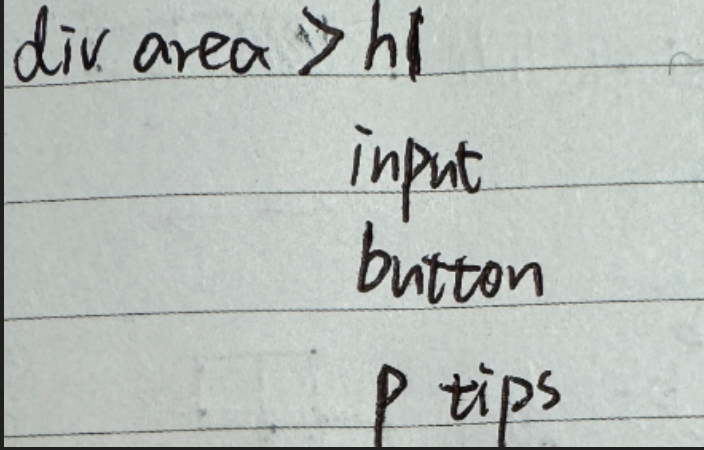 div area > h1
input
button
p tips